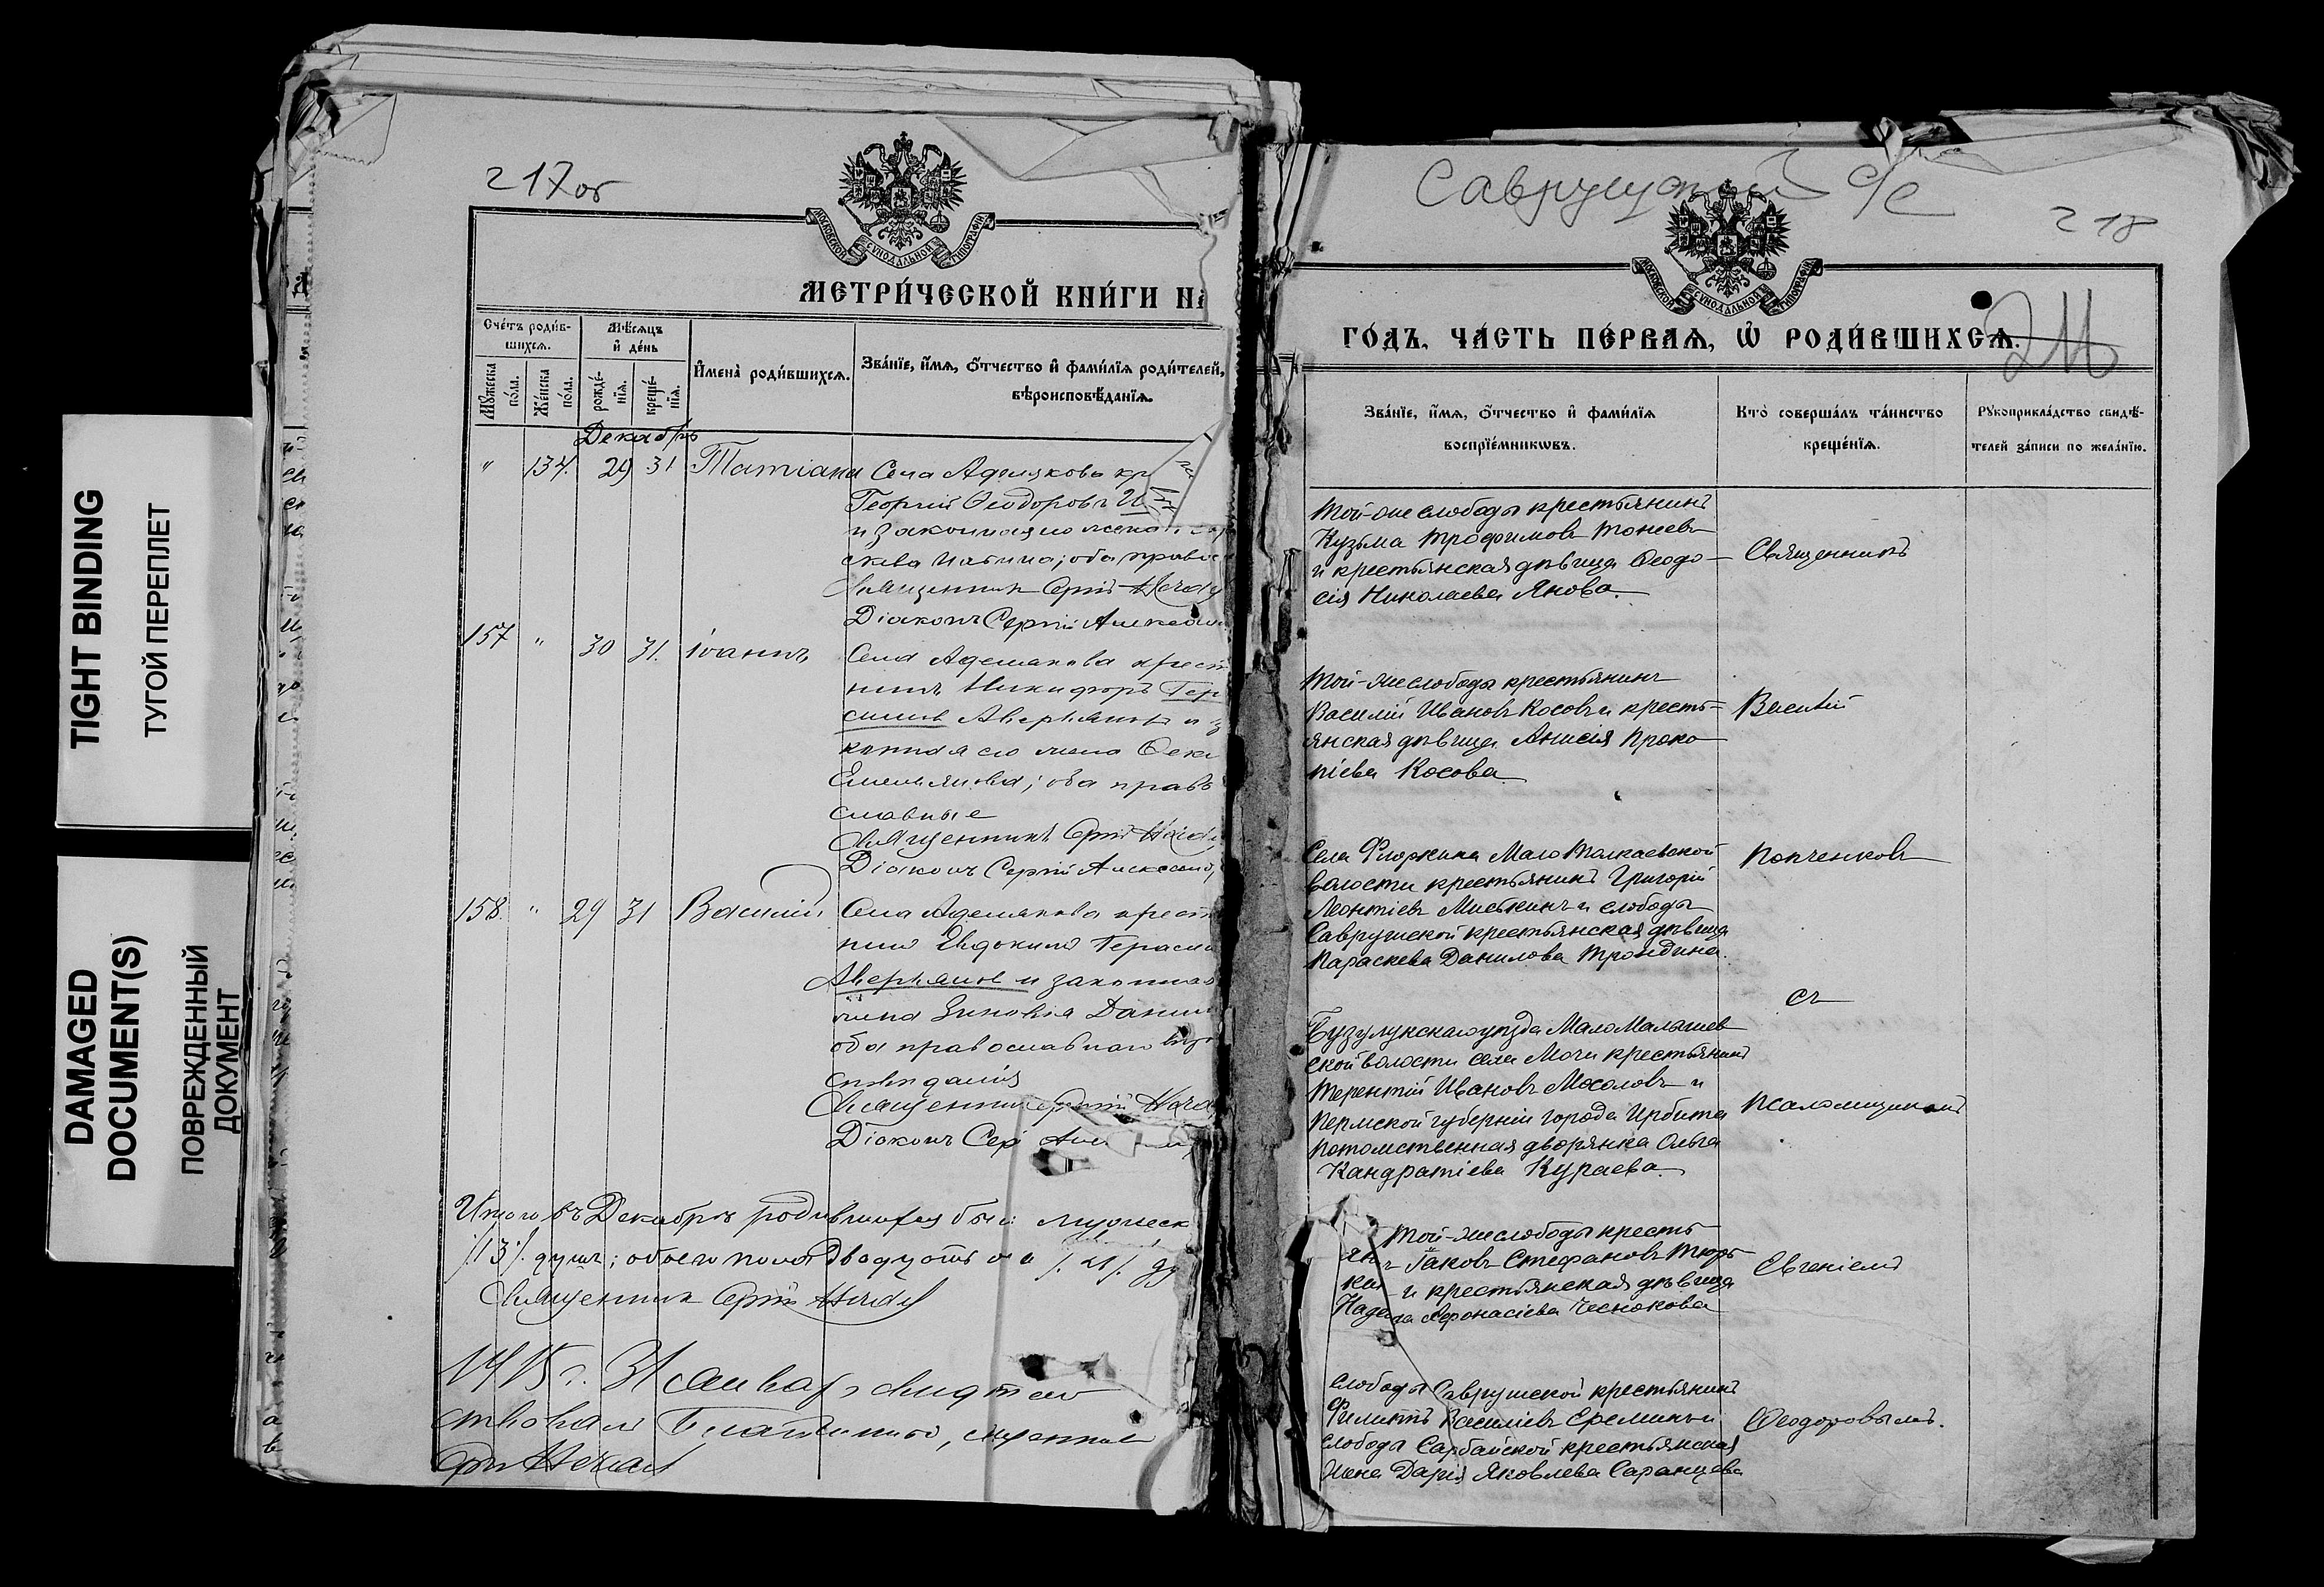 TIGHT BINDING
ТУГОЙ ПЕРЕПЛЕТ
DAMAGED
DOCUMENT(S)
ПОВРЕЖДЕННЫЙ
ДОКУМЕНТ
217об
МОСКОВСКОЙ СѴНОДАЛЬНОЙ ТИПОГРАФІИ
МЕТРИ́ЧЕСКОЙ КНИ́ГИ НА
Счéтъ роди́в-
шихсѧ.
Мѣ́сѧцъ
и҆ де́нь
Мꙋ́жеска
по́ла.
Же́нска
по́ла.
рожде́-
нїѧ.
креще́-
нїѧ.
И҆мена̀ роди́вшихсѧ.
Зва́нїе, и҆́мѧ, ѻ҆́тчество и҆ фами́лїѧ роди́телей,
вѣроисповѣ́данїѧ.
Декабрь
" 134. 29 31 Татіана Села Аделякова кр
Георгій Ѳеодоровъ
и законная его жена
оба право
Священникъ Сергій
Діаконъ Сергій Алексеев
157 " 30 31. Іоаннъ Села Аделякова крест
нинъ Никифоръ Гер
симов Аверьянов и з
конная его жена Ѳек
Емельянова; оба право
славные
Священникъ Сергій
Діаконъ Сергій Алексеев
158. " 29 31 Василій Села Аделякова крест
нин Евдоким Герасим
Аверьянов и законная
жена Зиновія Данил
оба православнаго вѣро
исповѣданія
Священник Сергій
Діаконъ Сер
Итого въ Декабрѣ родившихся было мужеск
/13/. душъ; обоего пола двадцать
Священник Сергій
1915 г. 31 января свидетель
ствовал Благочинный, священник
218
Саврушской с/с
МОСКОВСКОЙ СѴНОДАЛЬНОЙ ТИПОГРАФІИ
ГО́ДЪ, ЧА́СТЬ ПЕ́РВАѦ, Ѡ҆ РОДИ́ВШИХСѦ.
Зва́нїе, и҆́мѧ, ѻ҆́тчество и҆ фами́лїѧ
воспрїе́мникѡвъ.
Кто̀ соверша́лъ та́инство
креще́нїѧ.
Рꙋкоприкла́дство свидѣ́-
телей за́писи по жела́нїю.
Той-же слободы крестьянинъ
Кузьма Трофимовъ Тонеевъ
и крестьянская дѣвица Ѳеодо-
сія Николаева Янова.
Священникъ
Той-же слободы крестьянинъ
Василій Ивановъ Косовъ и кресть-
янская дѣвица Анисія Проко
піева Косова
Василій
Села Фюркина Мало Толкаевской
волости крестьянинъ Григорій
Леонтіевъ Мисткинъ и слободы
Саврушской крестьянская дѣвица
Параскева Данилова Трондина.
Попченковъ
съ
Бузулукскаго уѣзда Мало Малышев
ской волости села Мочи крестьянинъ
Терентій Ивановъ Мосоловъ и
Пермской губерніи города Ирбита
потомственная дворянка Ольга
Кандратіева Кураева.
псаломщикомъ
Той-же слободы кресть
Іаковъ Стефановъ Тюрь
и крестьянская дѣвица
Аѳонасіева Чеснокова
Евгеніемъ
слободы Саврушской крестьянинъ
Филиппъ Василіевъ Ереминъ и
слободы Сарбайской крестьянская
жена Дарія Яковлева Саранцева
Ѳеодоровымъ.